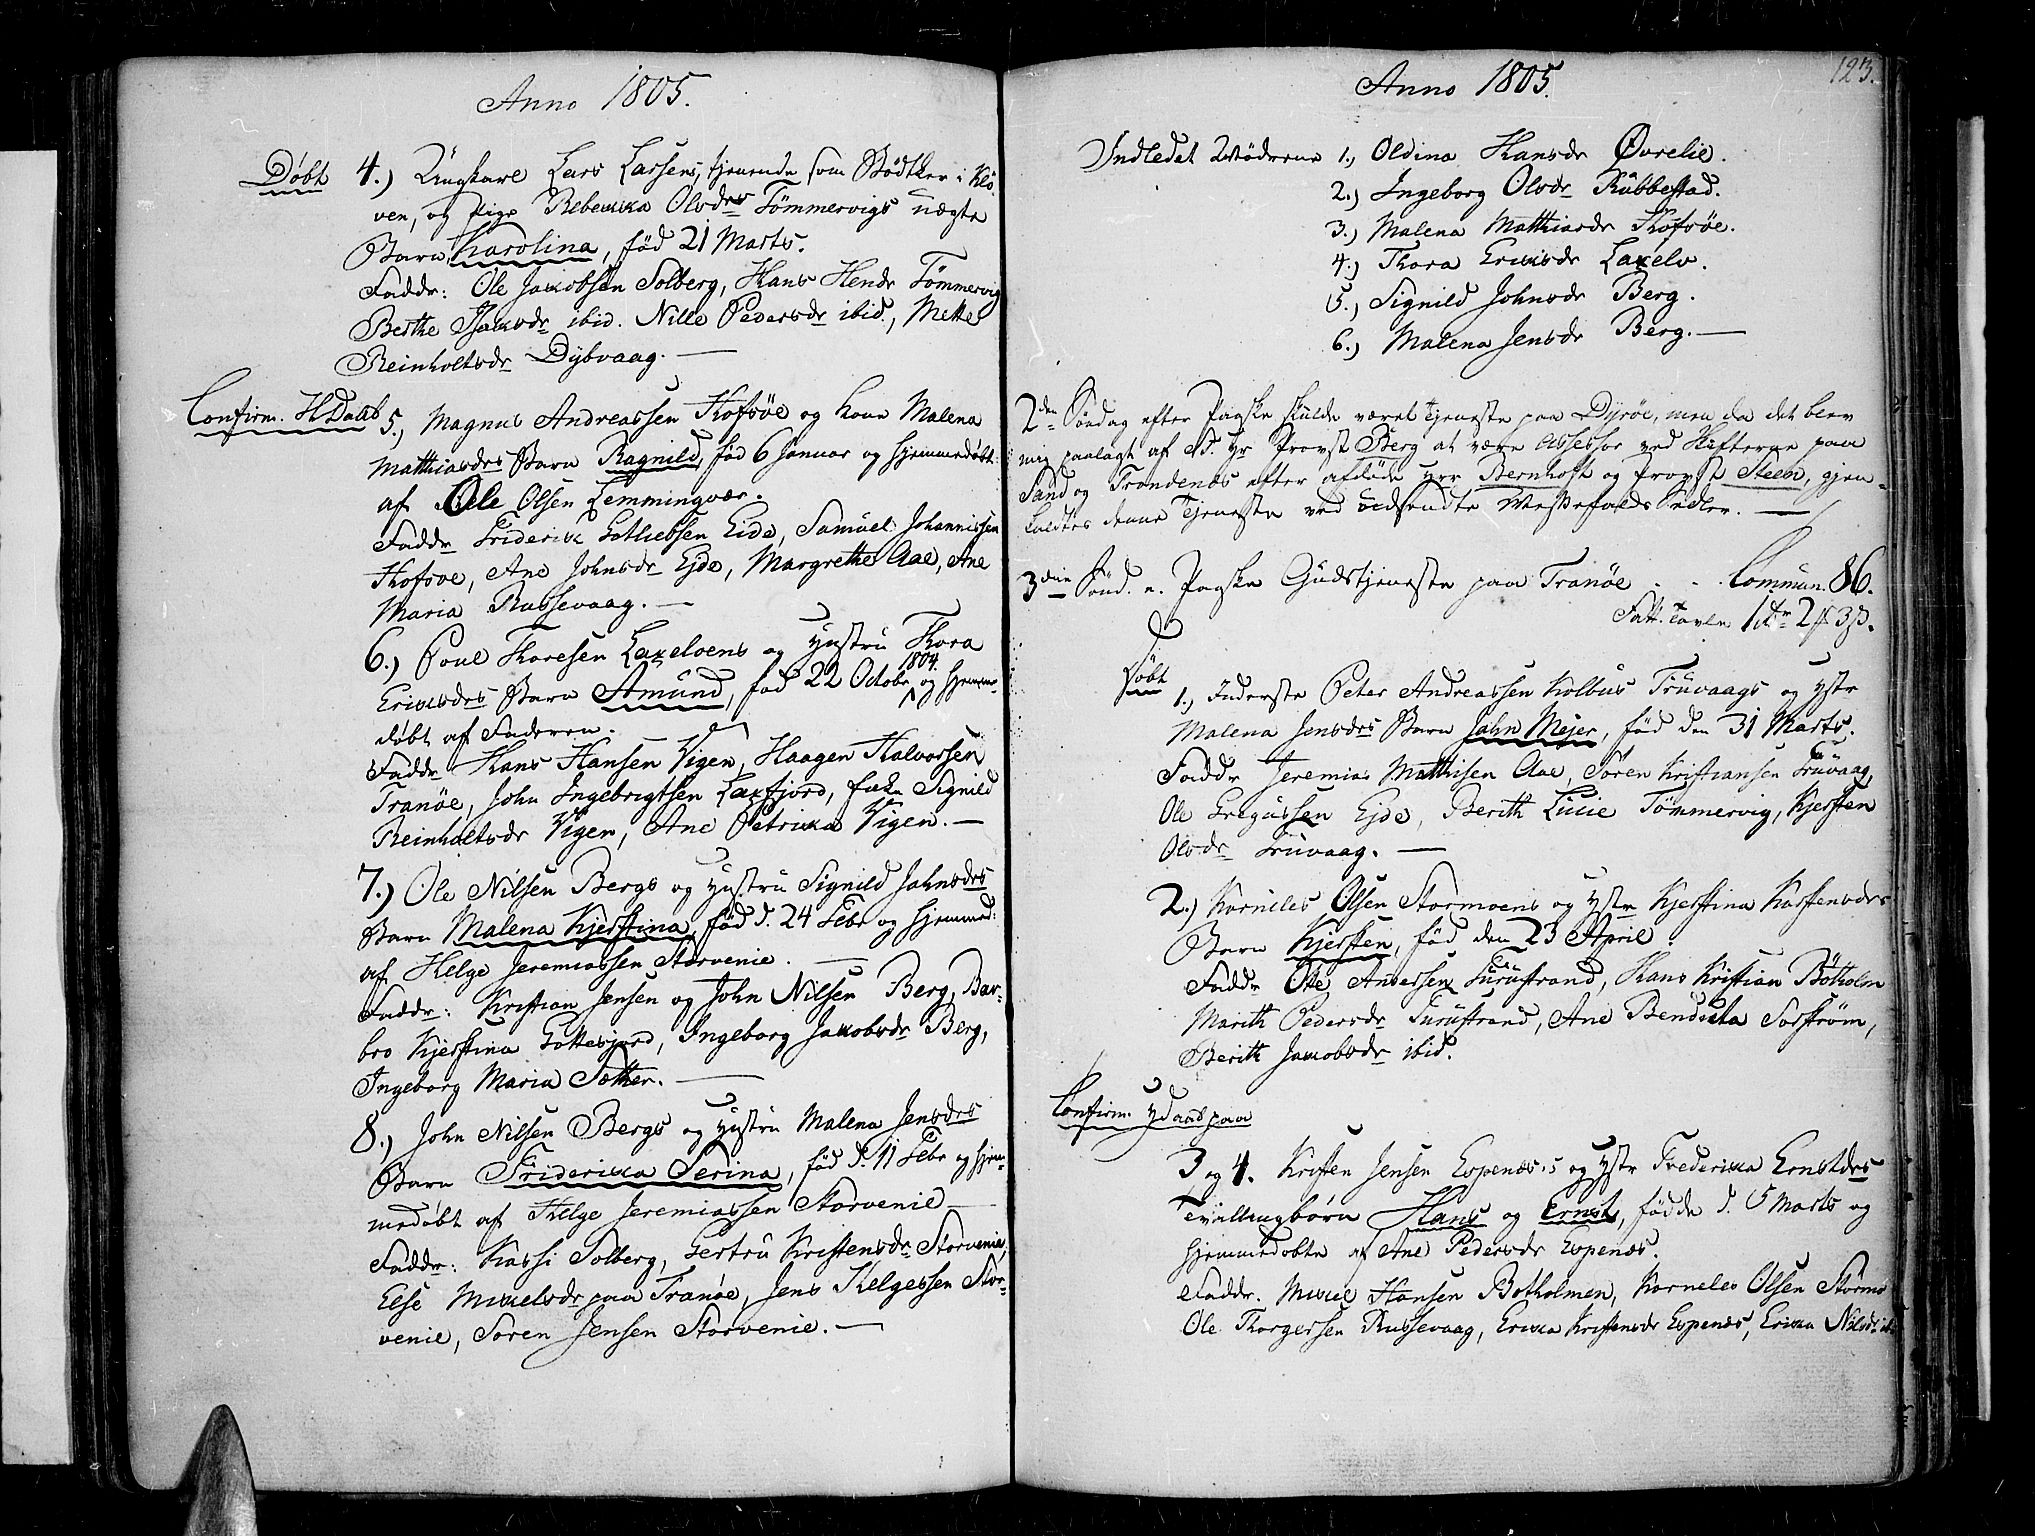 Anno 1805.
Døbt 4.) Ungkarl Lars Larsens, tjenende som Bødtker i Klö
ven, og Pige Rebekka Olsdrs Tømmervigs uægte
Barn, Karolina, fød 21 Marts.
Faddr: Ole Jakobsen Solberg, Hans Hendr Tømmervig
Berthe Isaksdr ibid. Nille Pedersdr ibid, Mette
Reinholtsdr Dybvaag. —
Confirm. H Daab 5., Magnus Andreassen Kofsöe og Kone Malena
Matthiasdrs Barn Ragnild, fød 6 Januar og hjemmedøbt
af Ole Olsen Lemmingvær.
Faddr Friderik Gotliebsen Eide, Samuel Johannissen
Kofsøe, Ane Johnsdr Ejde, Margrethe Aae, Ane
Maria Russevaag. —
6.) Poul Thoresen Laxelvens og Hustru Thora
1804.
Eriksdrs Barn Amund, fød 22 Octobr og hjemme-
døbt af Faderen.
Faddr Hans Hansen Vigen, Haagen Halvorsen
Tranöe, John Ingebrigtsen Laxfjord, Signild
Reinholtsdr Vigen, Ane Petrikka Vigen. —
7.) Ole Nilsen Bergs og Hustru Signild Jahnsdrs
Barn Malena Kjerstina, fød d. 24 Febr og hjemmed:
af Helge Jeremiassen Storvenie. —
Faddr: Kristian Jensen og John Nilsen Berg, Bar-
bro Kjerstina Gottesjord, Ingeborg Jakobsdr Berg,
Ingeborg Maria Sæther. —
8.) John Nilsen Bergs og Hustru Malena Jensdrs
Barn Friderikka Serina, fød d. 11 Febr og hjem-
medøbt af Helge Jeremiassen Storvenie —
Faddr: Kassi Solberg, Gertru Kristensdr Storvenie,
Else Mikkelsdr paa Tranöe, Jens Helgessen Stor-
venie, Sören Jensen Storvenie. —
Anno 1805.
123.
Indledet Mødrene 1.) Oldina Hansdr Øvrelie.
2.) Ingeborg Olsdr Rubbestad.
3.) Malena Matthiasdr Kofsöe.
4.) Thora Eriksdr Laxelv.
5.) Signild Johnsdr Berg.
6.) Malena Jensdr Berg. —
2den Söndag efter Paaske skulde været Tjeneste paa Dyröe, men da det blev
mig paalagt af Hr Provst Berg at være Assessor ved Skifterne paa
Sand og Trondenæs efter afdöde Herr Bernhoft og Provst Steen, gjen-
kaldtes denne Tjeneste ved udsendte Messefalds Sedler. —
3die Sönd. e. Paaske Gudstjeneste paa Tranöe - - Commun. 86.
Fatt. Tavlen 1 dr 2 # 3 ß.
Døbt
1.) Inderste Peter Andreassen Kolbus Truvaags og Hstr
Malena Jensdrs Barn John Mejer, fød den 31 Marts.
Faddr Jeremias Mathisen Aae, Sören Kristiansen Truvaag,
Ole Gregussen Ejde, Berith Lucie Tömmervig, Kjersten
Olsdr Truvaag. —
2.) Korneles Olsen Stormoens og Hstr Kjerstina Karstensdrs
Barn Kjersten, fød den 23 April.
Faddr Ole Andersen Furustrand, Hans Kristian Bötholm
Marith Pedersdr Furustrand, Ane Bendikta Sørstrøm,
Berith Jakobsdr ibid.
Confirm. Hdaab paa
3 og 4. Kristen Jensen Espenæs's og Hstr Frederikka Ernstdrs
Tvillingbörn Hans og Ernst, födde d. 5 Marts og
hjemmedøbte af Ane Pedersdr Espenæs.
Faddr. Mikkel Hansen Botholmen, Korneles Olsen Stormo
Ole Thorgersen Russevaag, Erikka Kristensdr Espenæs, Erikka Nilsdr